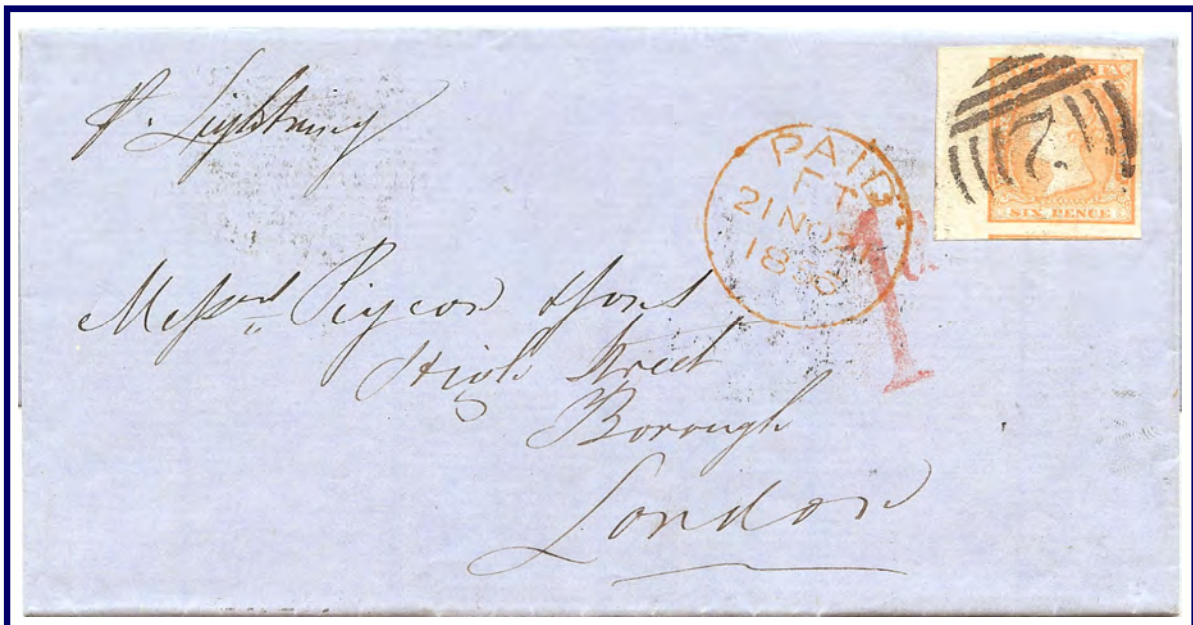 p. Lightning
PAID
21 NO
1856
1
2
SIX PENCE
Messrs Pigeon & Sons
High Street
Borough
London